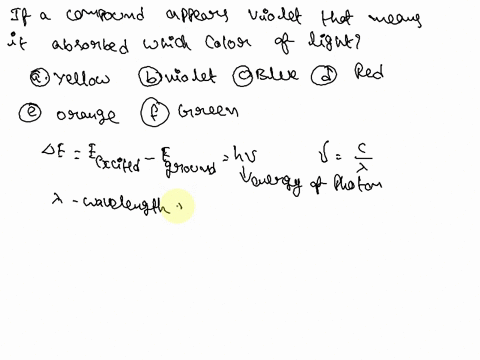 If a compound appears violet that means
it absorbed which color of light?
ⓐ yellow ⓑ violet ⓒ Blue ⓓ Red
ⓔ orange ⓕ Green
ΔE = E excited - E ground = hν ν = c/λ
↓ energy of Photon
λ - wavelength